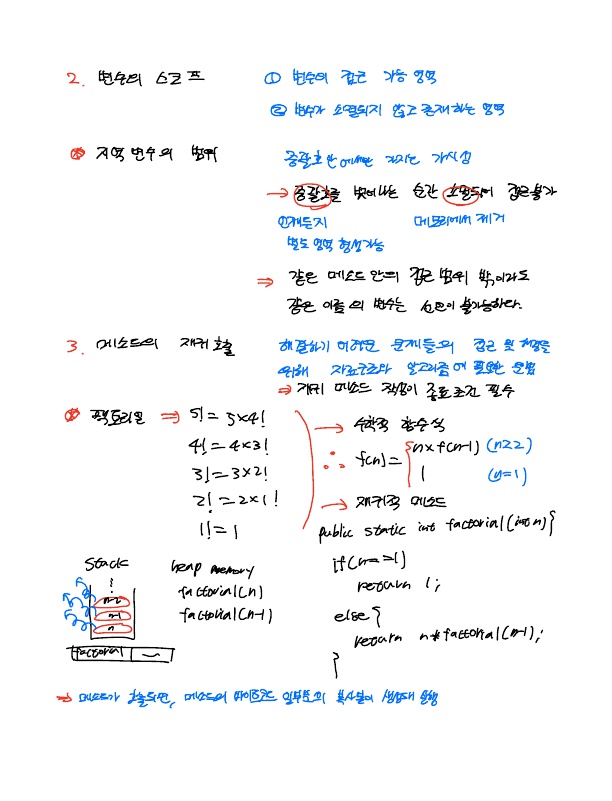 2. 변수의 스코프
① 변수의 접근 가능 영역
② 변수가 소멸되지 않고 존재하는 영역
※ 지역 변수의 범위
중괄호 안에서만 가지는 가시성
→ 중괄호를 벗어나는 순간 소멸되어 접근불가
언제든지
별도 영역 형성가능
메모리에서 제거
⇒ 같은 메소드 안의 접근 범위 밖이라도
같은 이름의 변수는 선언이 불가능하다.
3. 메소드의 재귀 호출
해결하기 어려운 문제들의 접근 및 해결을
위해 자료구조와 알고리즘에 필요한 문법
⇒ 재귀 메소드 작성시 종료조건 필수
※ 팩토리얼 ⇒ 5! = 5×4!
4! = 4×3!
3! = 3×2!
2! = 2×1!
1! = 1
→ 수학적 함수식
∴ f(n) = { n×f(n-1) (n≥2)
1 (n=1)
→ 재귀적 메소드
public static int factorial(int n){
if(n==1)
return 1;
else {
return n*factorial(n-1);
}
Stack
⋮
n-2
n-1
n
factorial
heap memory
factorial(n)
factorial(n-1)
⇒ 메소드가 호출되면, 메소드의 바이트코드 일부분의 복사본이 생성돼 실행